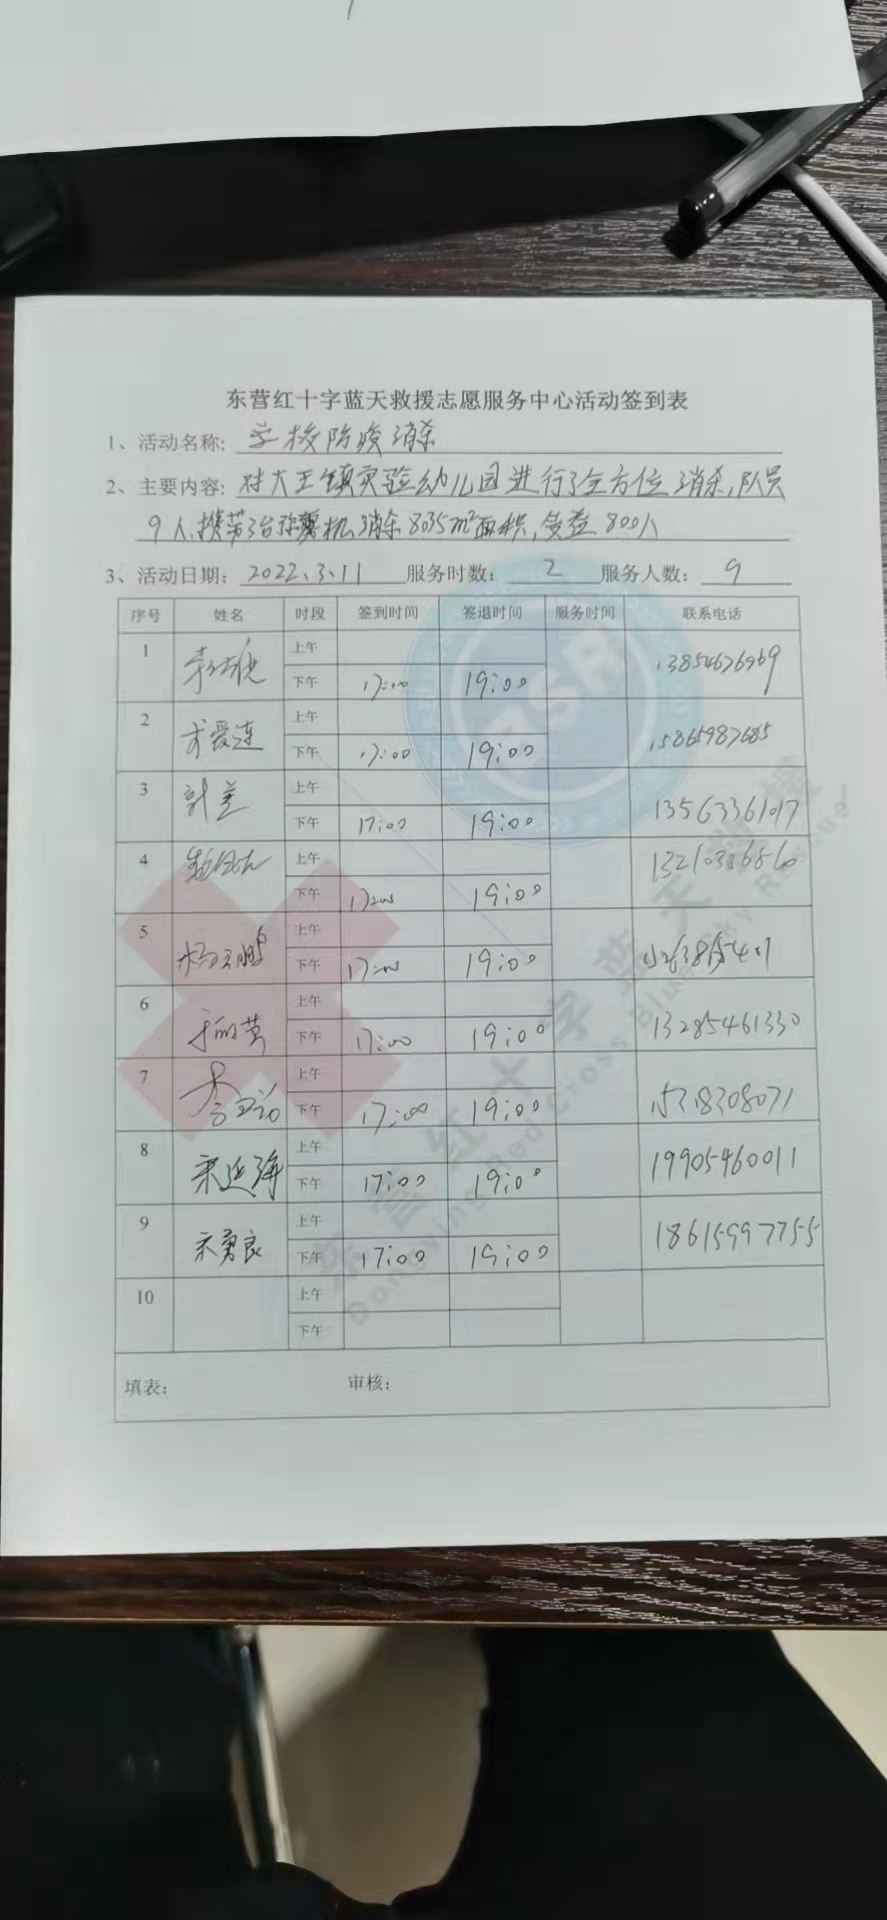 东营红十字蓝天救援志愿服务中心活动签到表
1、活动名称: 学校防疫消杀
2、主要内容: 对大王镇实验幼儿园进行了全方位消杀,队员
9人,携带3台弥雾机消杀8035m²面积,受益800人
3、活动日期: 2022.3.11 服务时数: 2 服务人数: 9
序号 姓名 时段 签到时间 签退时间 服务时间 联系电话
1 上午
下午 17:00 19:00 13854676969
2 爱连 上午
下午 17:00 19:00 15865987685
3 上午
下午 17:00 19:00 13563361017
4 上午
下午 17:00 19:00
5 杨云鹏 上午
下午 17:00 19:00
6 上午
下午 17:00 19:00 13285461330
7 李 上午
下午 17:00 19:00
8 宋延海 上午
下午 17:00 19:00 19905460011
9 宋勇良 上午
下午 17:00 19:00 18615997755
10 上午
下午
填表: 审核:
ZSR
东营红十字蓝天救援
Dongying Red Cross Blue Sky Rescue